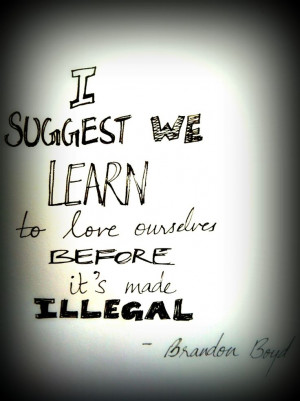 I
SUGGEST WE
LEARN
to love ourselves
BEFORE
it's made
ILLEGAL
- Brandon Boyd